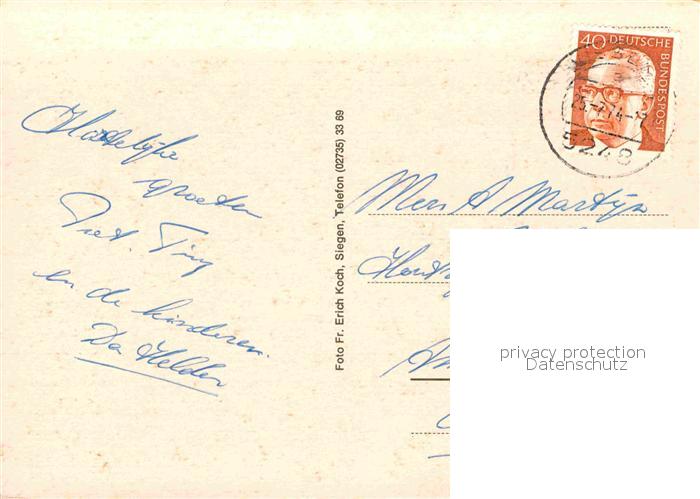 Hartelijke
groeten
Piet. Tiny
en de kinderen.
Den Helder
Foto Fr. Erich Koch, Siegen, Telefon (02735) 33 69
40 DEUTSCHE
BUNDESPOST
25.-7.74-17
5248
A Martijn
privacy protection
Datenschutz